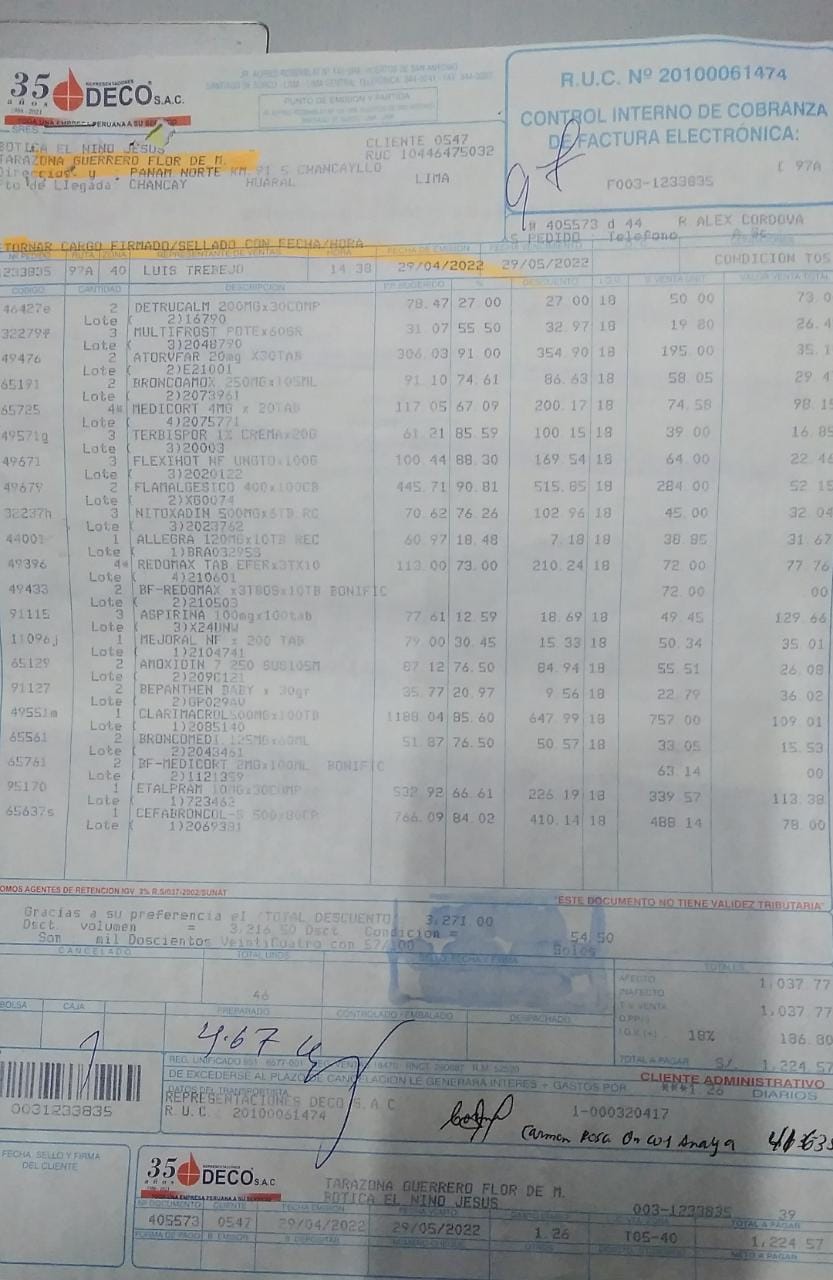 35 años
REPRESENTACIONES DECO S.A.C.
TODA UNA EMPRESA PERUANA A SU SERVICIO
PUNTO DE EMISION Y PARTIDA
R.U.C. Nº 20100061474
CONTROL INTERNO DE COBRANZA
DE FACTURA ELECTRÓNICA:
97A
F003-1233835
SRES
BOTICA EL NINO JESUS
TARAZONA GUERRERO FLOR DE M.
CLIENTE 0547
RUC 10446475032
PANAM NORTE KM 91 5 CHANCAYLLO
Pto de Llegada: CHANCAY HUARAL LIMA
# 405573 d 44 R ALEX CORDOVA
PEDIDO : Telefono
RETORNAR CARGO FIRMADO/SELLADO CON FECHA/HORA
RUTA ZONA REPRESENTANTE DE VENTAS HORA FECHA DE EMISION
1233835 97A 40 LUIS TREBEJO 14 38 29/04/2022 29/05/2022 CONDICION T05
CODIGO CANTIDAD DESCRIPCION P.P. SUGERIDO % DESCUENTO I.G.V. V. VENTA UNIT VALOR VENTA TOTAL
46427e 2 DETRUCALM 200MGx30COMP 78.47 27 00 27 00 18 50 00 73.0
Lote ( 2)16790
32279f 3 MULTIFROST POTEx60GR 31 07 55.50 32.97 18 19 80 26.4
Lote ( 3)2048790
49476 2 ATORVFAR 20mg X30TAB 306.03 91.00 354.90 18 195.00 35.1
Lote ( 2)E21001
65191 2 BRONCOAMOX 250MGx105ML 91.10 74.61 86.63 18 58 05 29 4
Lote ( 2)2073961
65725 4* MEDICORT 4MG x 20TAB 117 05 67 09 200.17 18 74.58 98.15
Lote ( 4)2075771
49571g 3 TERBISPOR 1% CREMAx20G 61.21 85.59 100 15 18 39 00 16.85
Lote ( 3)20003
49671 3 FLEXIHOT NF UNGTOx100G 100.44 88.30 169.54 18 64.00 22.46
Lote ( 3)2020122
49679 2 FLAMALGESICO 400x100CB 445.71 90.81 515.85 18 284.00 52 15
Lote ( 2)XG0074
32237h 3 NITOXADIN 500MGx6TB RC 70.62 76.26 102.96 18 45.00 32 04
Lote ( 3)2023762
44001 1 ALLEGRA 120MGx10TB REC 60.97 18.48 7.18 18 38 85 31.67
Lote ( 1)BRA03295S
49396 4* REDOMAX TAB EFERx3TX10 113.00 73.00 210.24 18 72 00 77.76
Lote ( 4)210601
49433 2 BF-REDOMAX x3TBGSx10TB BONIFIC 72.00 .00
Lote ( 2)210503
91115 3 ASPIRINA 100mgx100tab 77.61 12.59 18.69 18 49.45 129.66
Lote ( 3)X24UNW
11096j 1 MEJORAL NF x 200 TAB 79 00 30.45 15.33 18 50.34 35 01
Lote ( 1)2104741
65129 2 AMOXIDIN 7 250 SUS105M 87.12 76.50 84.94 18 55.51 26.08
Lote ( 2)209C121
91127 2 BEPANTHEN BABY x 30gr 35.77 20.97 9.56 18 22 79 36 02
Lote ( 2)GP029AV
49551m 1 CLARIMACROL500MGx100TB 1188 04 85.60 647.99 18 757 00 109 01
Lote ( 1)2085140
65561 2 BRONCOMEDI 125MGx60ML 51.87 76.50 50.57 18 33 05 15.53
Lote ( 2)2043461
65761 2 BF-MEDICORT 2MGx100ML BONIFIC 63.14 00
Lote ( 2)1121359
95170 1 ETALPRAM 10MGx30COMP 532 92 66.61 226 19 18 339 57 113.38
Lote ( 1)723462
65637s 1 CEFABRONCOL-S 500/80CP 766.09 84.02 410.14 18 488.14 78.00
Lote ( 1)2069381
SOMOS AGENTES DE RETENCION IGV 3% R.S/037-2002/SUNAT
"ESTE DOCUMENTO NO TIENE VALIDEZ TRIBUTARIA"
Gracias a su preferencia el TOTAL DESCUENTO 3,271.00
Dsct. volumen = 3,216.50 Dsct Condicion = 54.50
Son mil Doscientos VeintiCuatro con 57/100 Soles
CANCELADO TOTAL UNDS SELLO, FECHA Y FIRMA TOTALES
46
AFECTO 1,037 77
INAFECTO
T.V. VENTA 1,037 77
D.PP(-)
I.G.V. (+) 18% 186.80
BOLSA CAJA PREPARADO CONTROLADO - EMBALADO DESPACHADO
4.67
TOTAL A PAGAR S/. 1,224 57
DE EXCEDERSE AL PLAZO DE CANCELACION LE GENERARA INTERES + GASTOS POR
CLIENTE ADMINISTRATIVO
***1.26 DIARIOS
0031233835
DATOS DEL TRANSPORTISTA
REPRESENTACIONES DECO S.A.C
R.U.C. 20100061474
1-000320417
Carmen Rosa
FECHA, SELLO Y FIRMA
DEL CLIENTE
35 años
REPRESENTACIONES DECO S.A.C.
TODA UNA EMPRESA PERUANA A SU SERVICIO
TARAZONA GUERRERO FLOR DE M.
BOTICA EL NINO JESUS
003-1233835 39
Nº DOCUMENTO CLIENTE FECHA EMISION TOTAL A PAGAR
405573 0547 29/04/2022 29/05/2022 1.26 T05-40 1,224 57
FORMA DE PAGO B. EMISOR B. DEPOSITAR NUMERO CHEQUE OTROS NETO A PAGAR